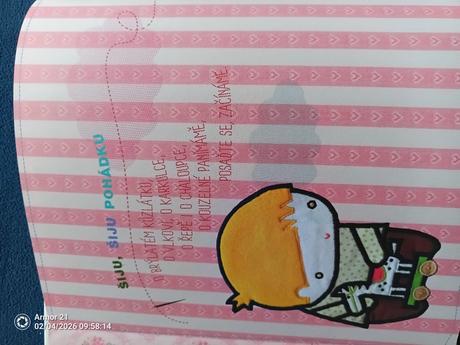 ŠIJU, ŠIJU POHÁDKU
O BRADATÉM KŮZLÁTKU,
O VLKOVI, O KARKULCE,
O ŘEPĚ I O CHALOUPCE,
O KOUZELNÉ PANÍ MÁMĚ.
POSAĎTE SE, ZAČÍNÁME.
Armor 21
02/04/2026 09:58:14